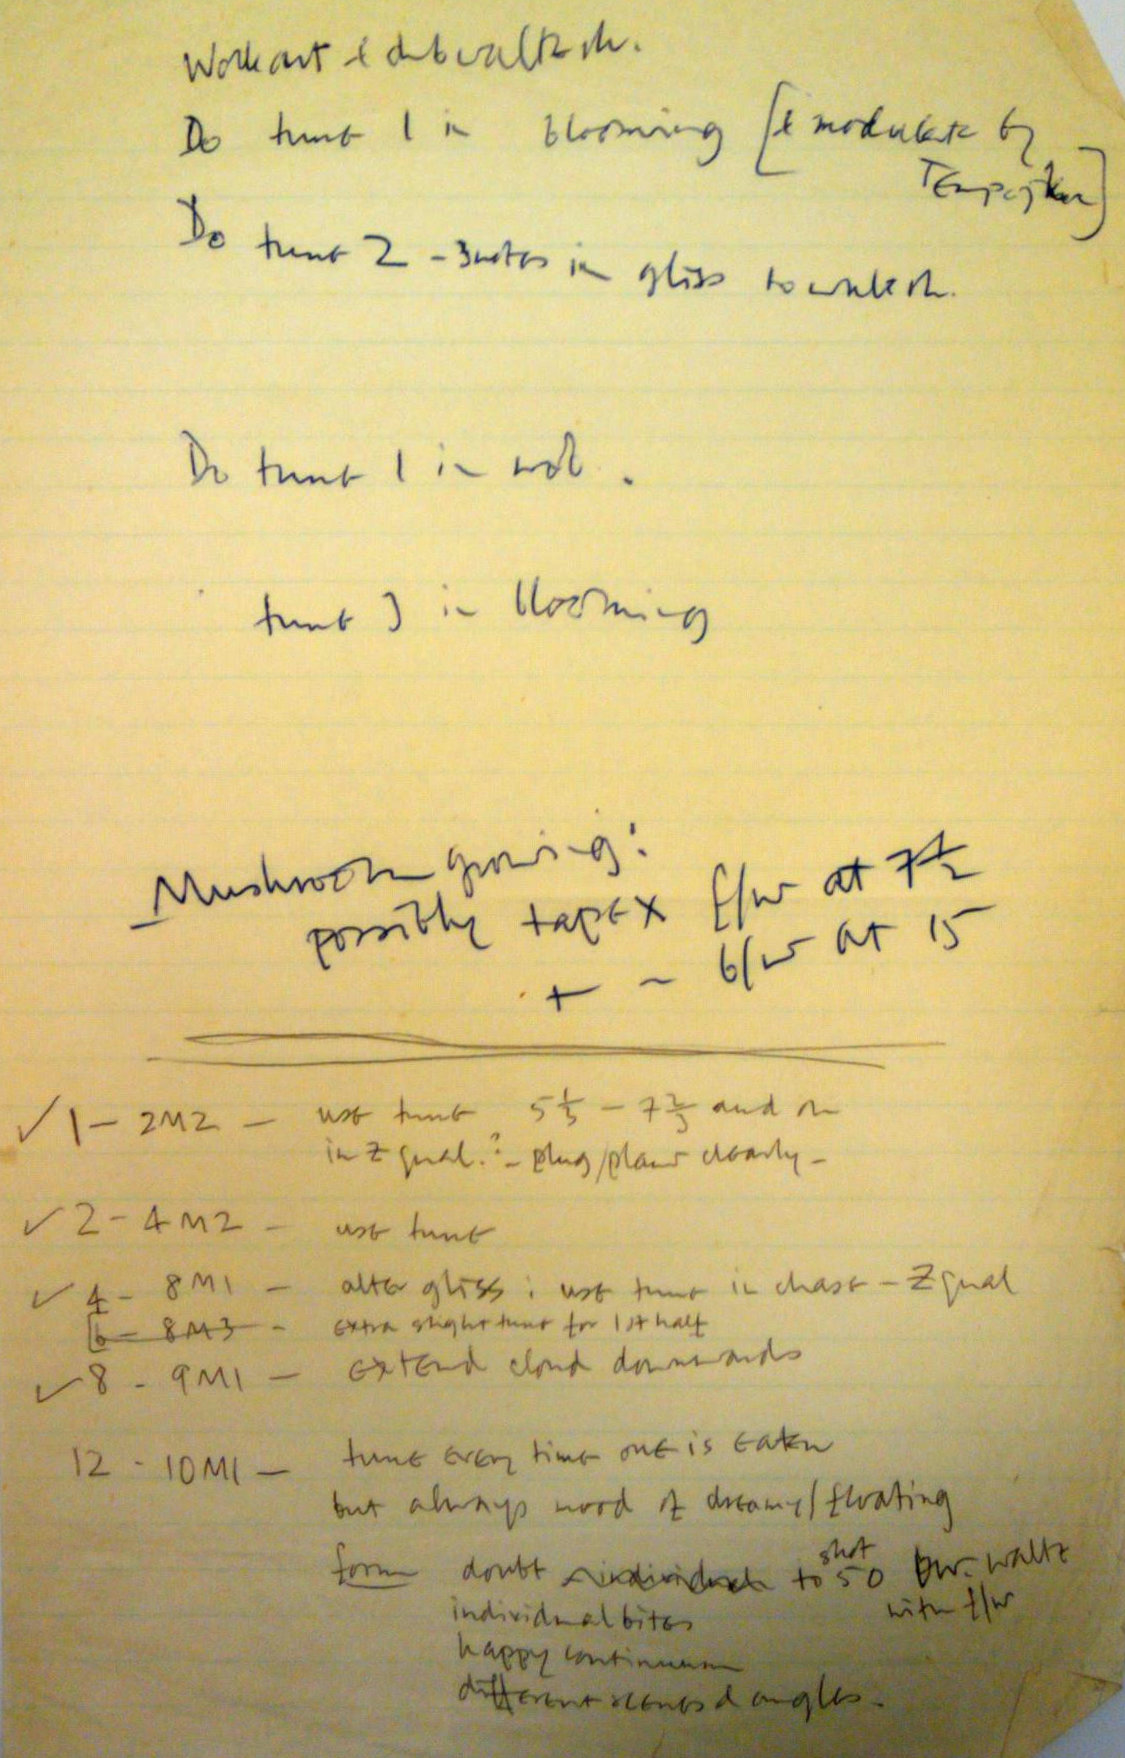 Work out & dub waltz
Do tune 1 in blooming [& modulate by
Do tune 2 - 3 notes in gliss to
Do tune 1 in wob.
tune 3 in blooming
Mushroom growing:
possibly tape x f/w at 7 1/2
+ - b/w at 15
✓ 1 - 2M2 - use tune 5 1/3 - 7 2/3 and on
in Z qual. ? - plug/place clearly -
✓ 2 - 4M2 - use tune
✓ 4 - 8M1 - alter gliss : use tune in chase - Z qual
6 - 8M3 - extra slight tune for 1st half
✓ 8 - 9M1 - extend cloud downwards
12 - 10M1 - tune every time one is eaten
but always mood of dreamy/floating
form doubt individual to shot 50 bw. waltz
with f/w
individual bites
happy continuum
different scenes & angles.